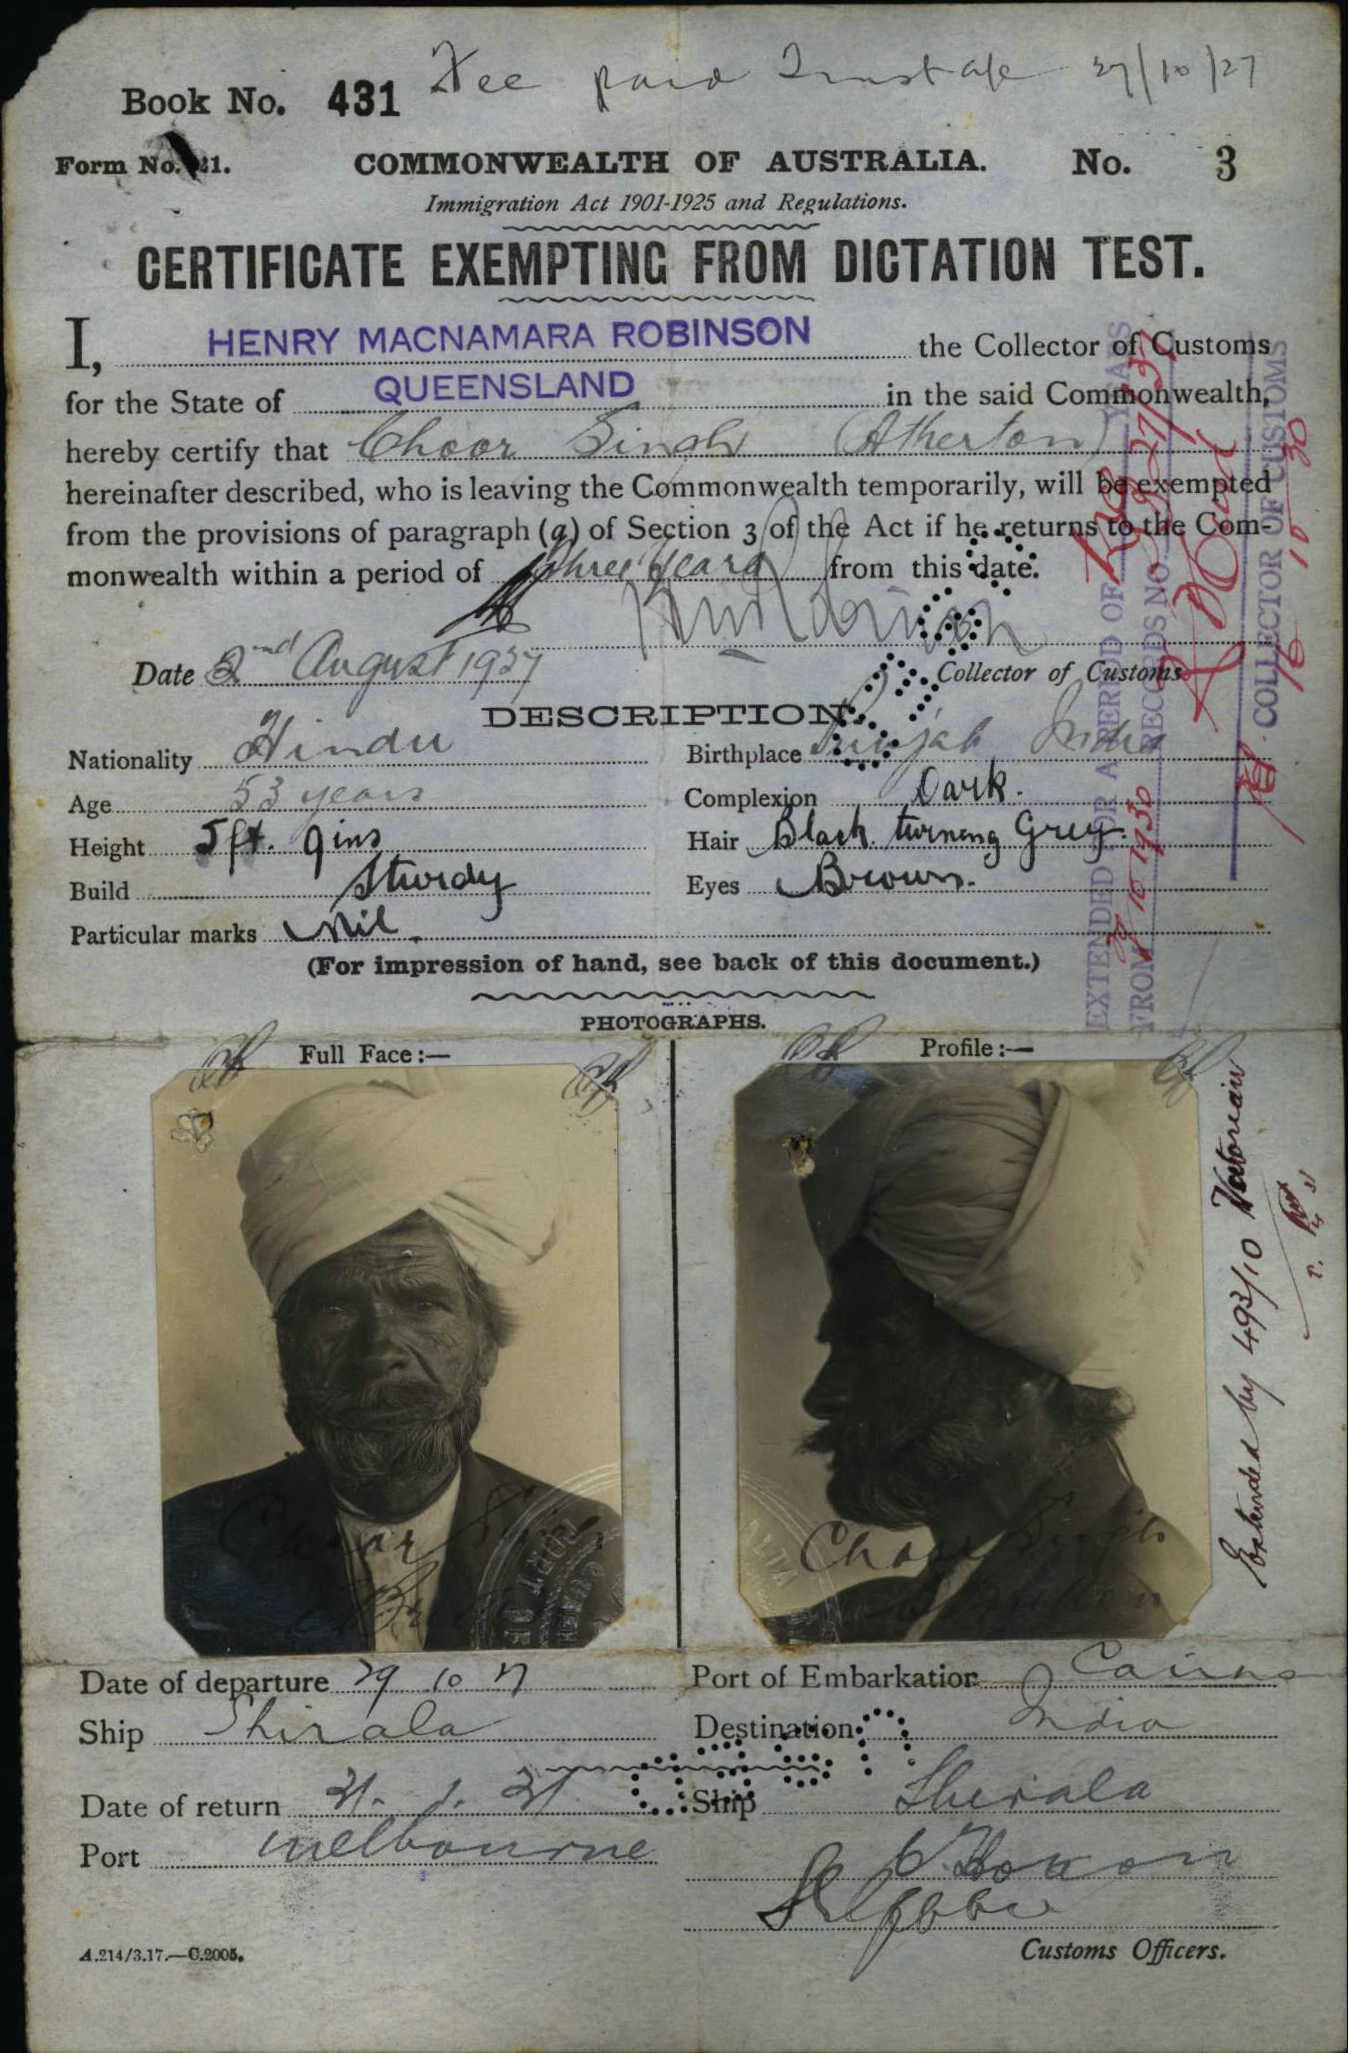 Book No. 431 Fee paid Trust a/c 27/10/27
Form No. 21. COMMONWEALTH OF AUSTRALIA. No. 3
Immigration Act 1901-1925 and Regulations.
CERTIFICATE EXEMPTING FROM DICTATION TEST.
I, HENRY MACNAMARA ROBINSON the Collector of Customs
for the State of QUEENSLAND in the said Commonwealth,
hereby certify that Choor Singh (Atherton)
hereinafter described, who is leaving the Commonwealth temporarily, will be exempted
from the provisions of paragraph (a) of Section 3 of the Act if he returns to the Com-
monwealth within a period of three years from this date.
Date 2nd August 1927 Collector of Customs
DESCRIPTION.
Nationality Hindu Birthplace Punjab India
Age 53 years Complexion Dark.
Height 5ft. 9ins Hair Black turning Grey.
Build Sturdy Eyes Brown.
Particular marks Nil.
(For impression of hand, see back of this document.)
PHOTOGRAPHS.
Full Face:— Profile:—
Choor Singh
Choor Singh
EXTENDED FOR A PERIOD OF YEARS
FROM 29 10 1930 RECORDS NO.
COLLECTOR OF CUSTOMS
16 10 30
Extended by 493/10 Victorian
Date of departure 29 10 27 Port of Embarkation Cairns
Ship Shirala Destination India
Date of return 31. 1. 31 Ship Shirala
Port Melbourne
Customs Officers.
A.214/3.17.—C.2005.